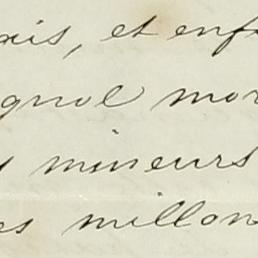 ais, et enf
gnol mor
mineurs
es millon